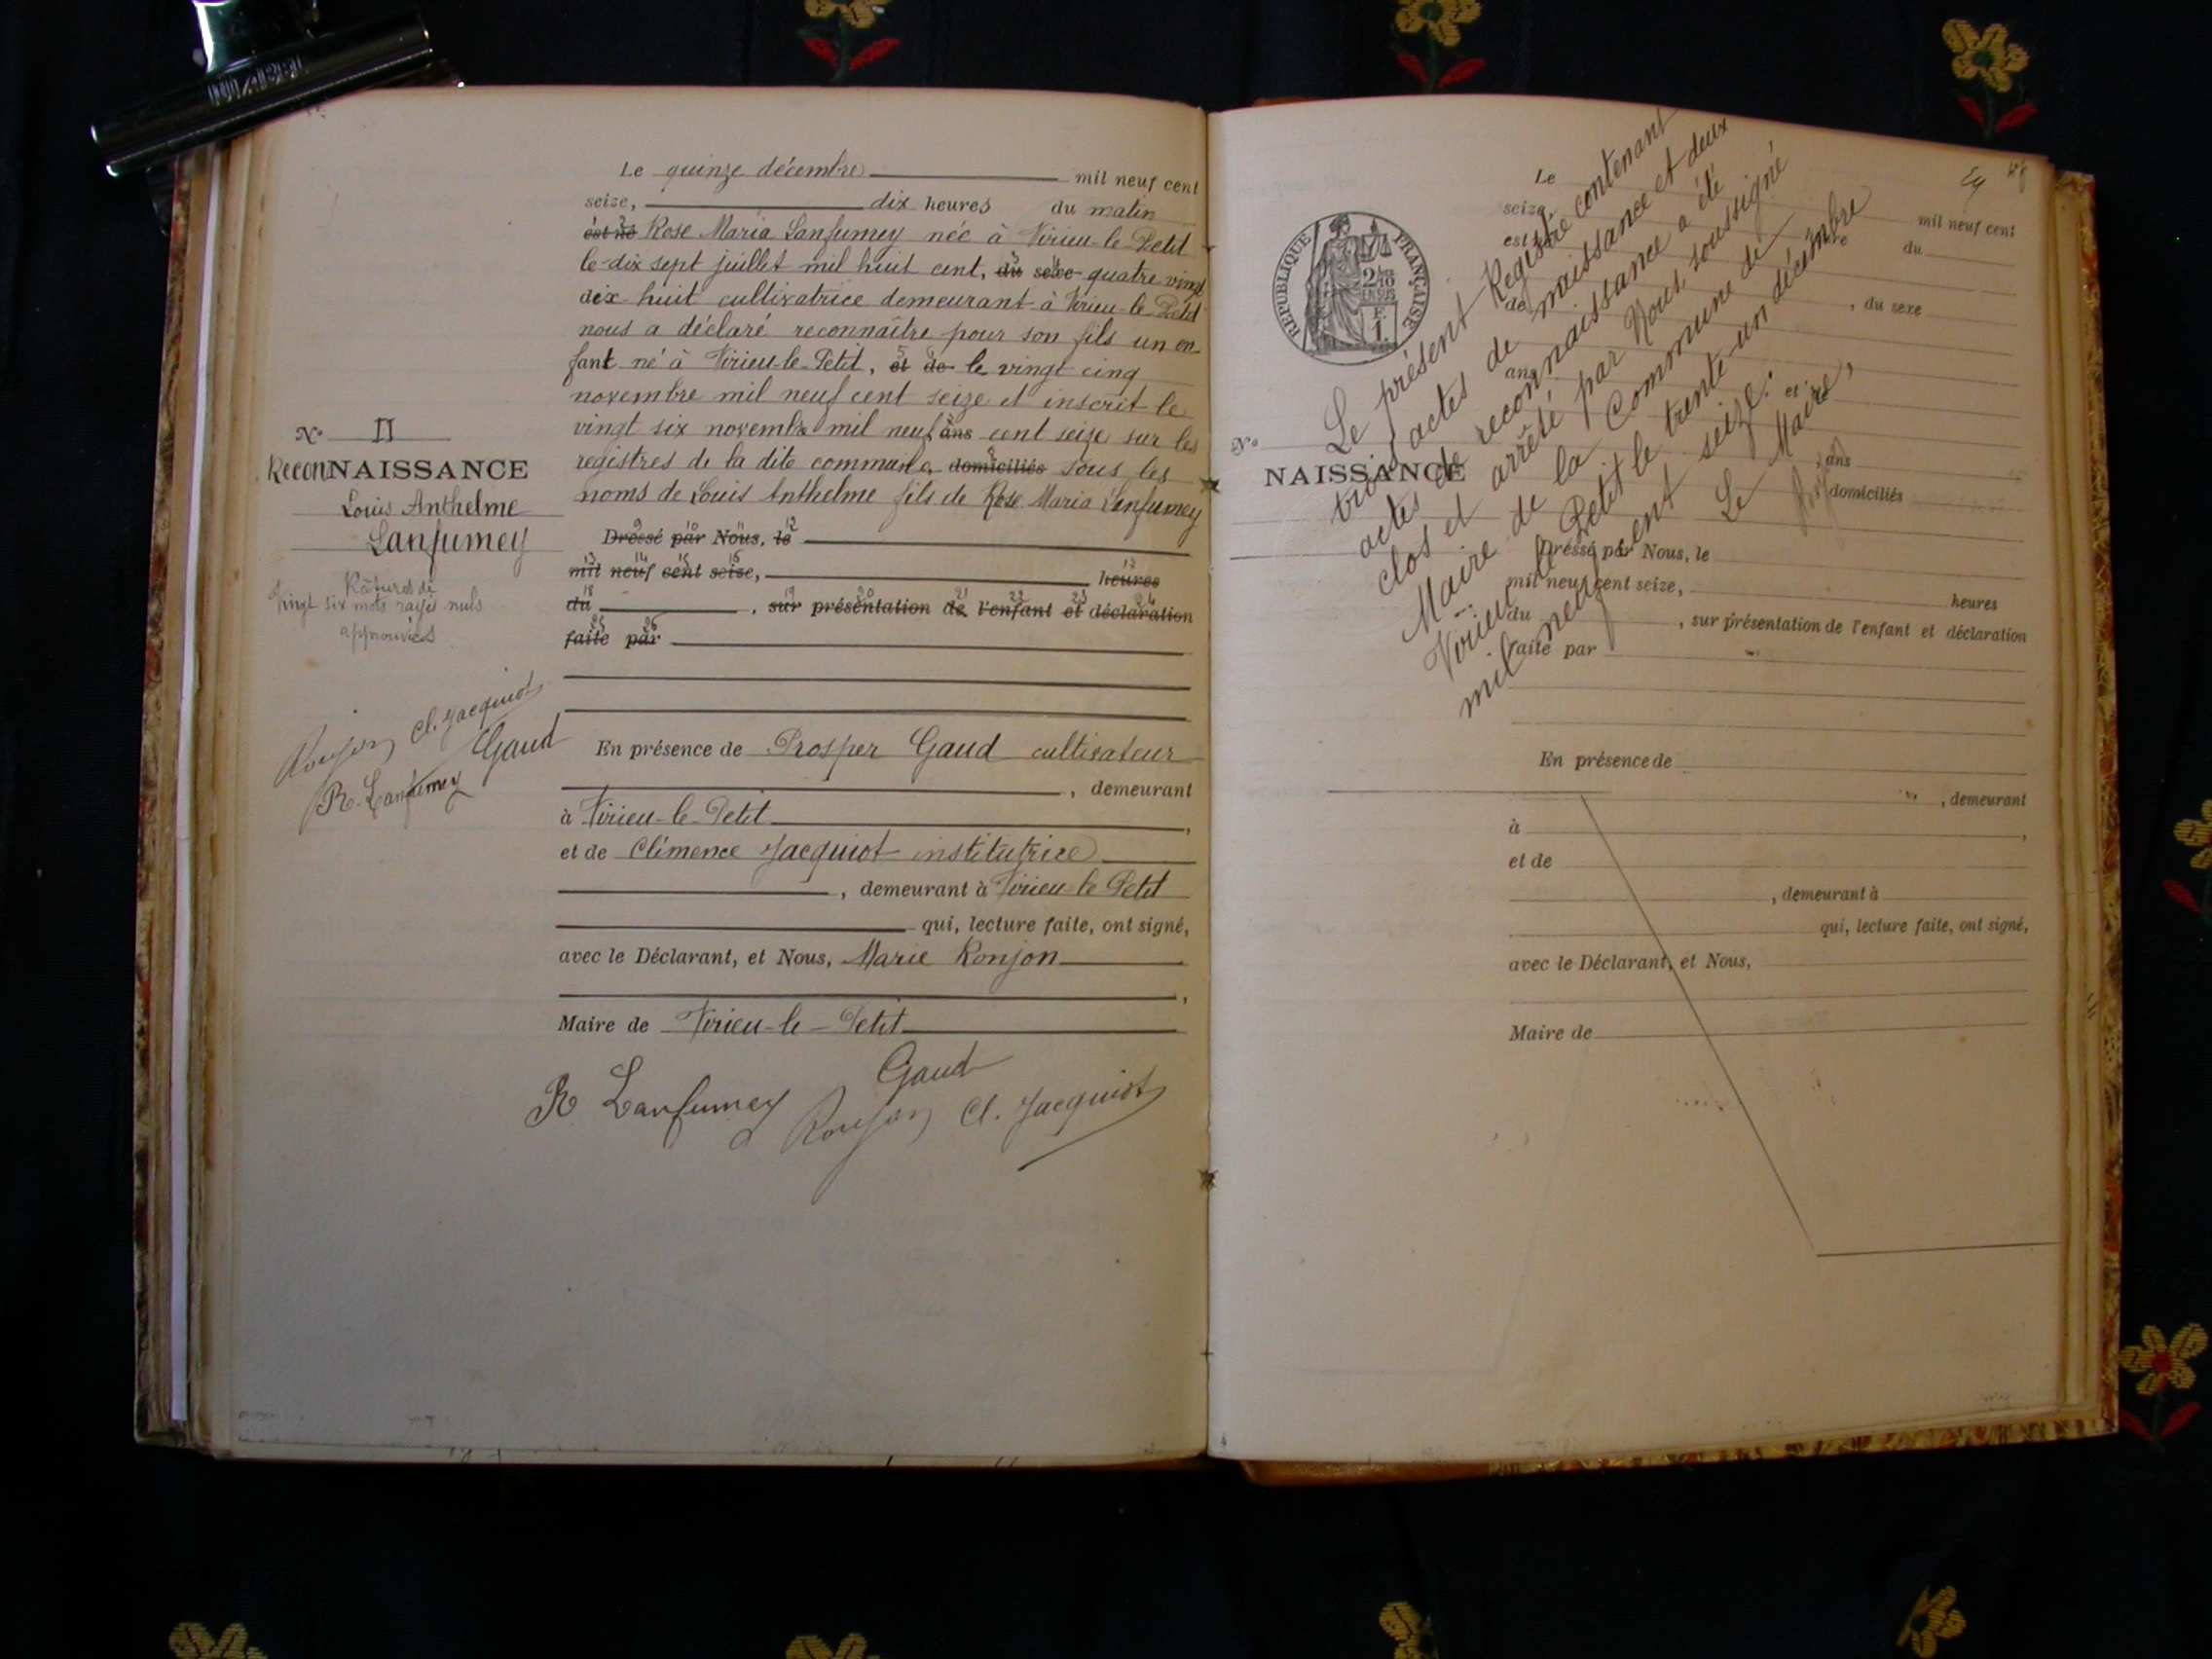 Le quinze décembre mil neuf cent
seize, dix heures du matin
est né Rose Maria Lanfumey née à Virieu-le-Petit
le dix sept juillet mil huit cent, du sexe quatre vingt
dix huit cultivatrice demeurant à Virieu-le-Petit
nous a déclaré reconnaître pour son fils un en
fant né à Virieu-le-Petit, et de le vingt cinq
novembre mil neuf cent seize et inscrit le
vingt six novembre mil neuf ans cent seize sur les
registres de la dite commune domiciliés sous les
noms de Louis Anthelme fils de Rose Maria Lanfumey
N° II
ReconNAISSANCE
Louis Anthelme
Lanfumey
Ratures de
vingt six mots rayés nuls
approuvées
Ronjon Cl. Jacquiot
R. Lanfumey Gaud
Dressé par Nous, le
mil neuf cent seize, heures
du , sur présentation de l'enfant et déclaration
faite par
En présence de Prosper Gaud cultivateur
, demeurant
à Virieu-le-Petit,
et de Clémence Jacquiot institutrice
, demeurant à Virieu-le-Petit
qui, lecture faite, ont signé,
avec le Déclarant, et Nous, Marie Ronjon
,
Maire de Virieu-le-Petit
R Lanfumey Gaud
Ronjon Cl. Jacquiot
24
RÉPUBLIQUE FRANÇAISE
F.
1.
Le mil neuf cent
seize, heure du
est
de , du sexe
ans et
, ans
domiciliés
N°
NAISSANCE
Le présent Registre contenant
trois actes de naissance et deux
actes de reconnaissance a été
clos et arrêté par Nous, soussigné
Maire de la Commune de
Virieu-le-Petit le trente-un décembre
mil neuf cent seize.
Le Maire,
Dressé par Nous, le
mil neuf cent seize, heures
du , sur présentation de l'enfant et déclaration
faite par
En présence de
, demeurant
à ,
et de
, demeurant à
qui, lecture faite, ont signé,
avec le Déclarant, et Nous,
Maire de